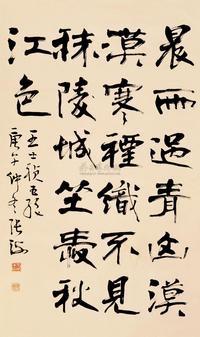 晨雨過青山漠
漠寒煙織不見
秣陵城坐愛秋
江色
王士禎五絕
庚午仲冬張海